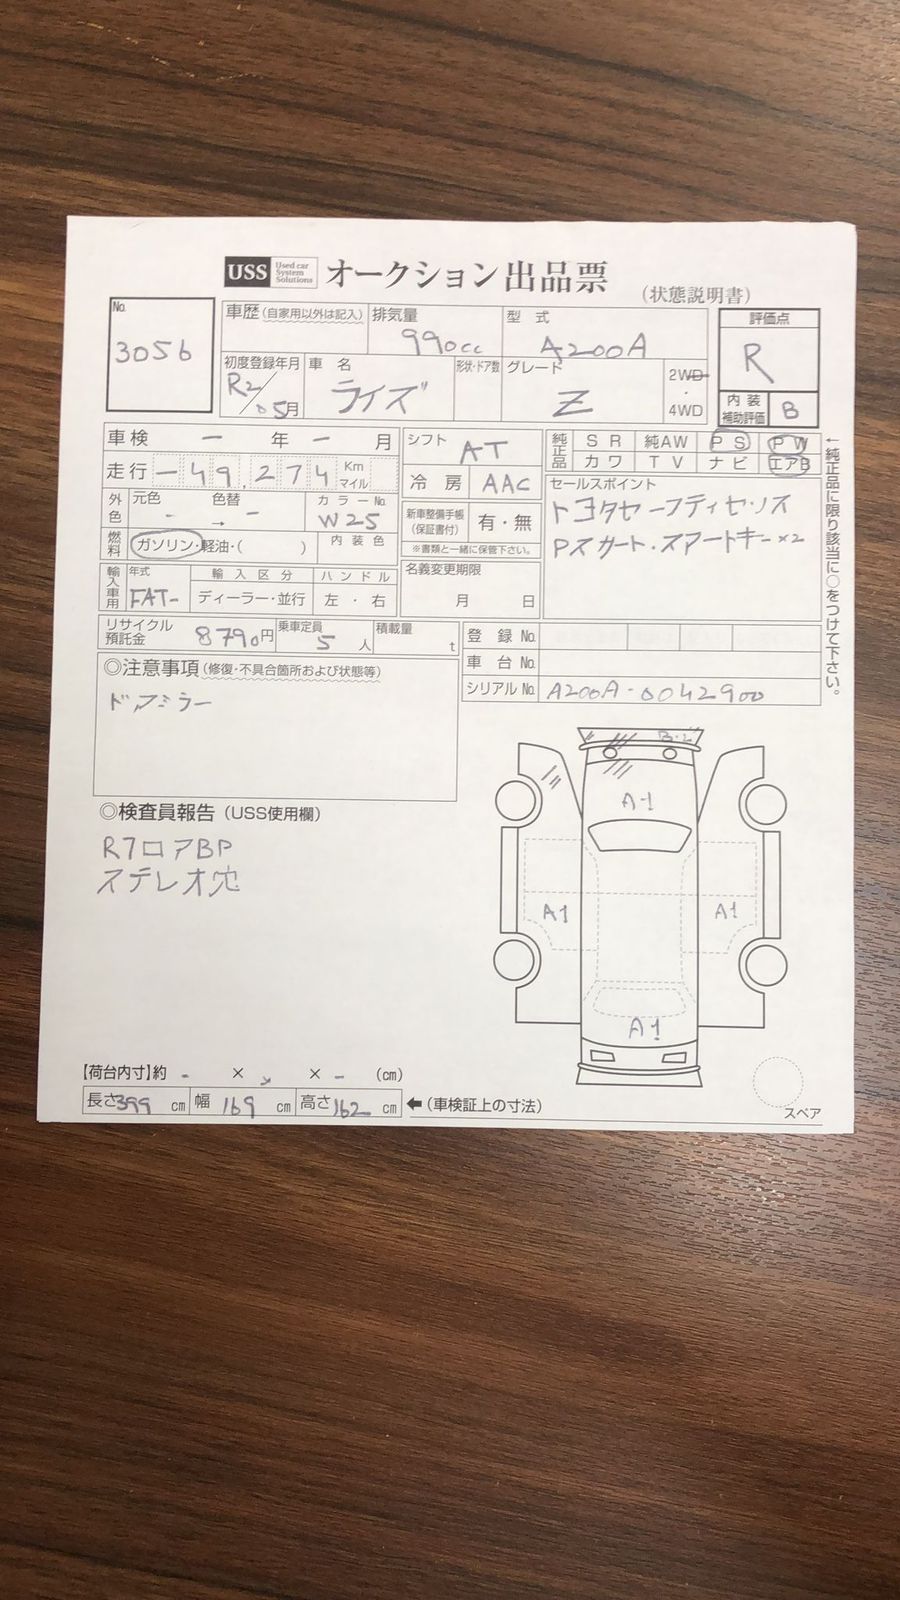 USS Used car System Solutions オークション出品票 (状態説明書)
No. 3056
車歴(自家用以外は記入)
排気量 990cc
型式 A200A
評価点 R
初度登録年月 R2/05月
車名 ライズ
形状・ドア数
グレード Z
2WD・4WD
内装補助評価 B
車検 - 年 - 月
走行 -49,274 Km マイル
外色 元色 - 色替 → - カラーNo. W25
燃料 ガソリン・軽油・( ) 内装色
輸入車用 年式 FAT- 輸入区分 ディーラー・並行 ハンドル 左・右
シフト AT
冷房 AAC
新車整備手帳(保証書付) 有・無
※書類と一緒に保管下さい。
名義変更期限 月 日
純正品 SR 純AW PS PW
カワ TV ナビ エアB
←純正品に限り該当に○をつけて下さい。
セールスポイント
トヨタセーフティセンス
Pスタート・スマートキー×2
リサイクル預託金 8790円 乗車定員 5人 積載量 t
登録No.
車台No.
シリアルNo. A200A-0042900
◎注意事項(修復・不具合箇所および状態等)
ドアミラー
◎検査員報告(USS使用欄)
ステレオ穴
A1
A1
A1
A1
【荷台内寸】約 - × × - (cm)
長さ399cm 幅169cm 高さ162cm ←(車検証上の寸法)
スペア